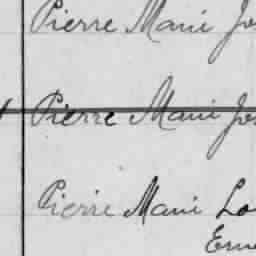 Pierre Marie Jos
Pierre Marie Jos
Pierre Marie Lo
Erne